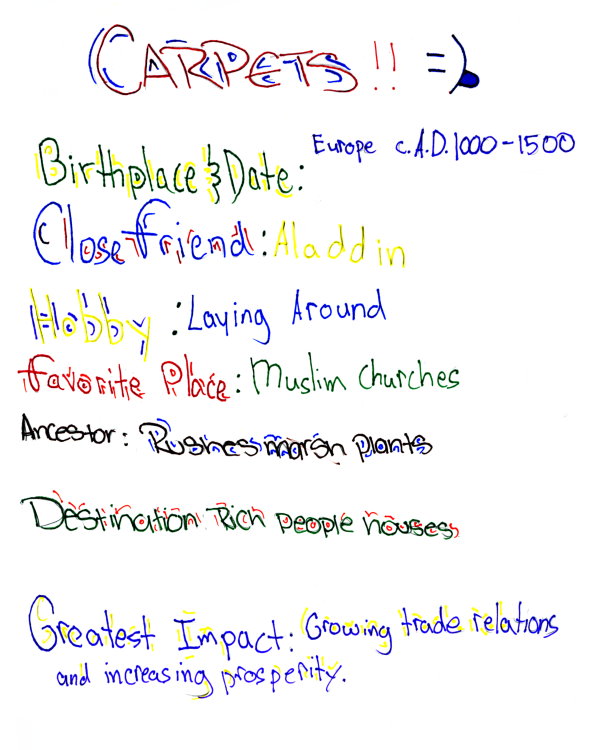 CARPETS!! =)
Birthplace & Date: Europe c.A.D.1000-1500
Close friend: Aladdin
Hobby: Laying Around
favorite Place: Muslim Churches
Ancestor: Rushes marsh plants
Destination Rich people houses
Greatest Impact: Growing trade relations
and increasing prosperity.